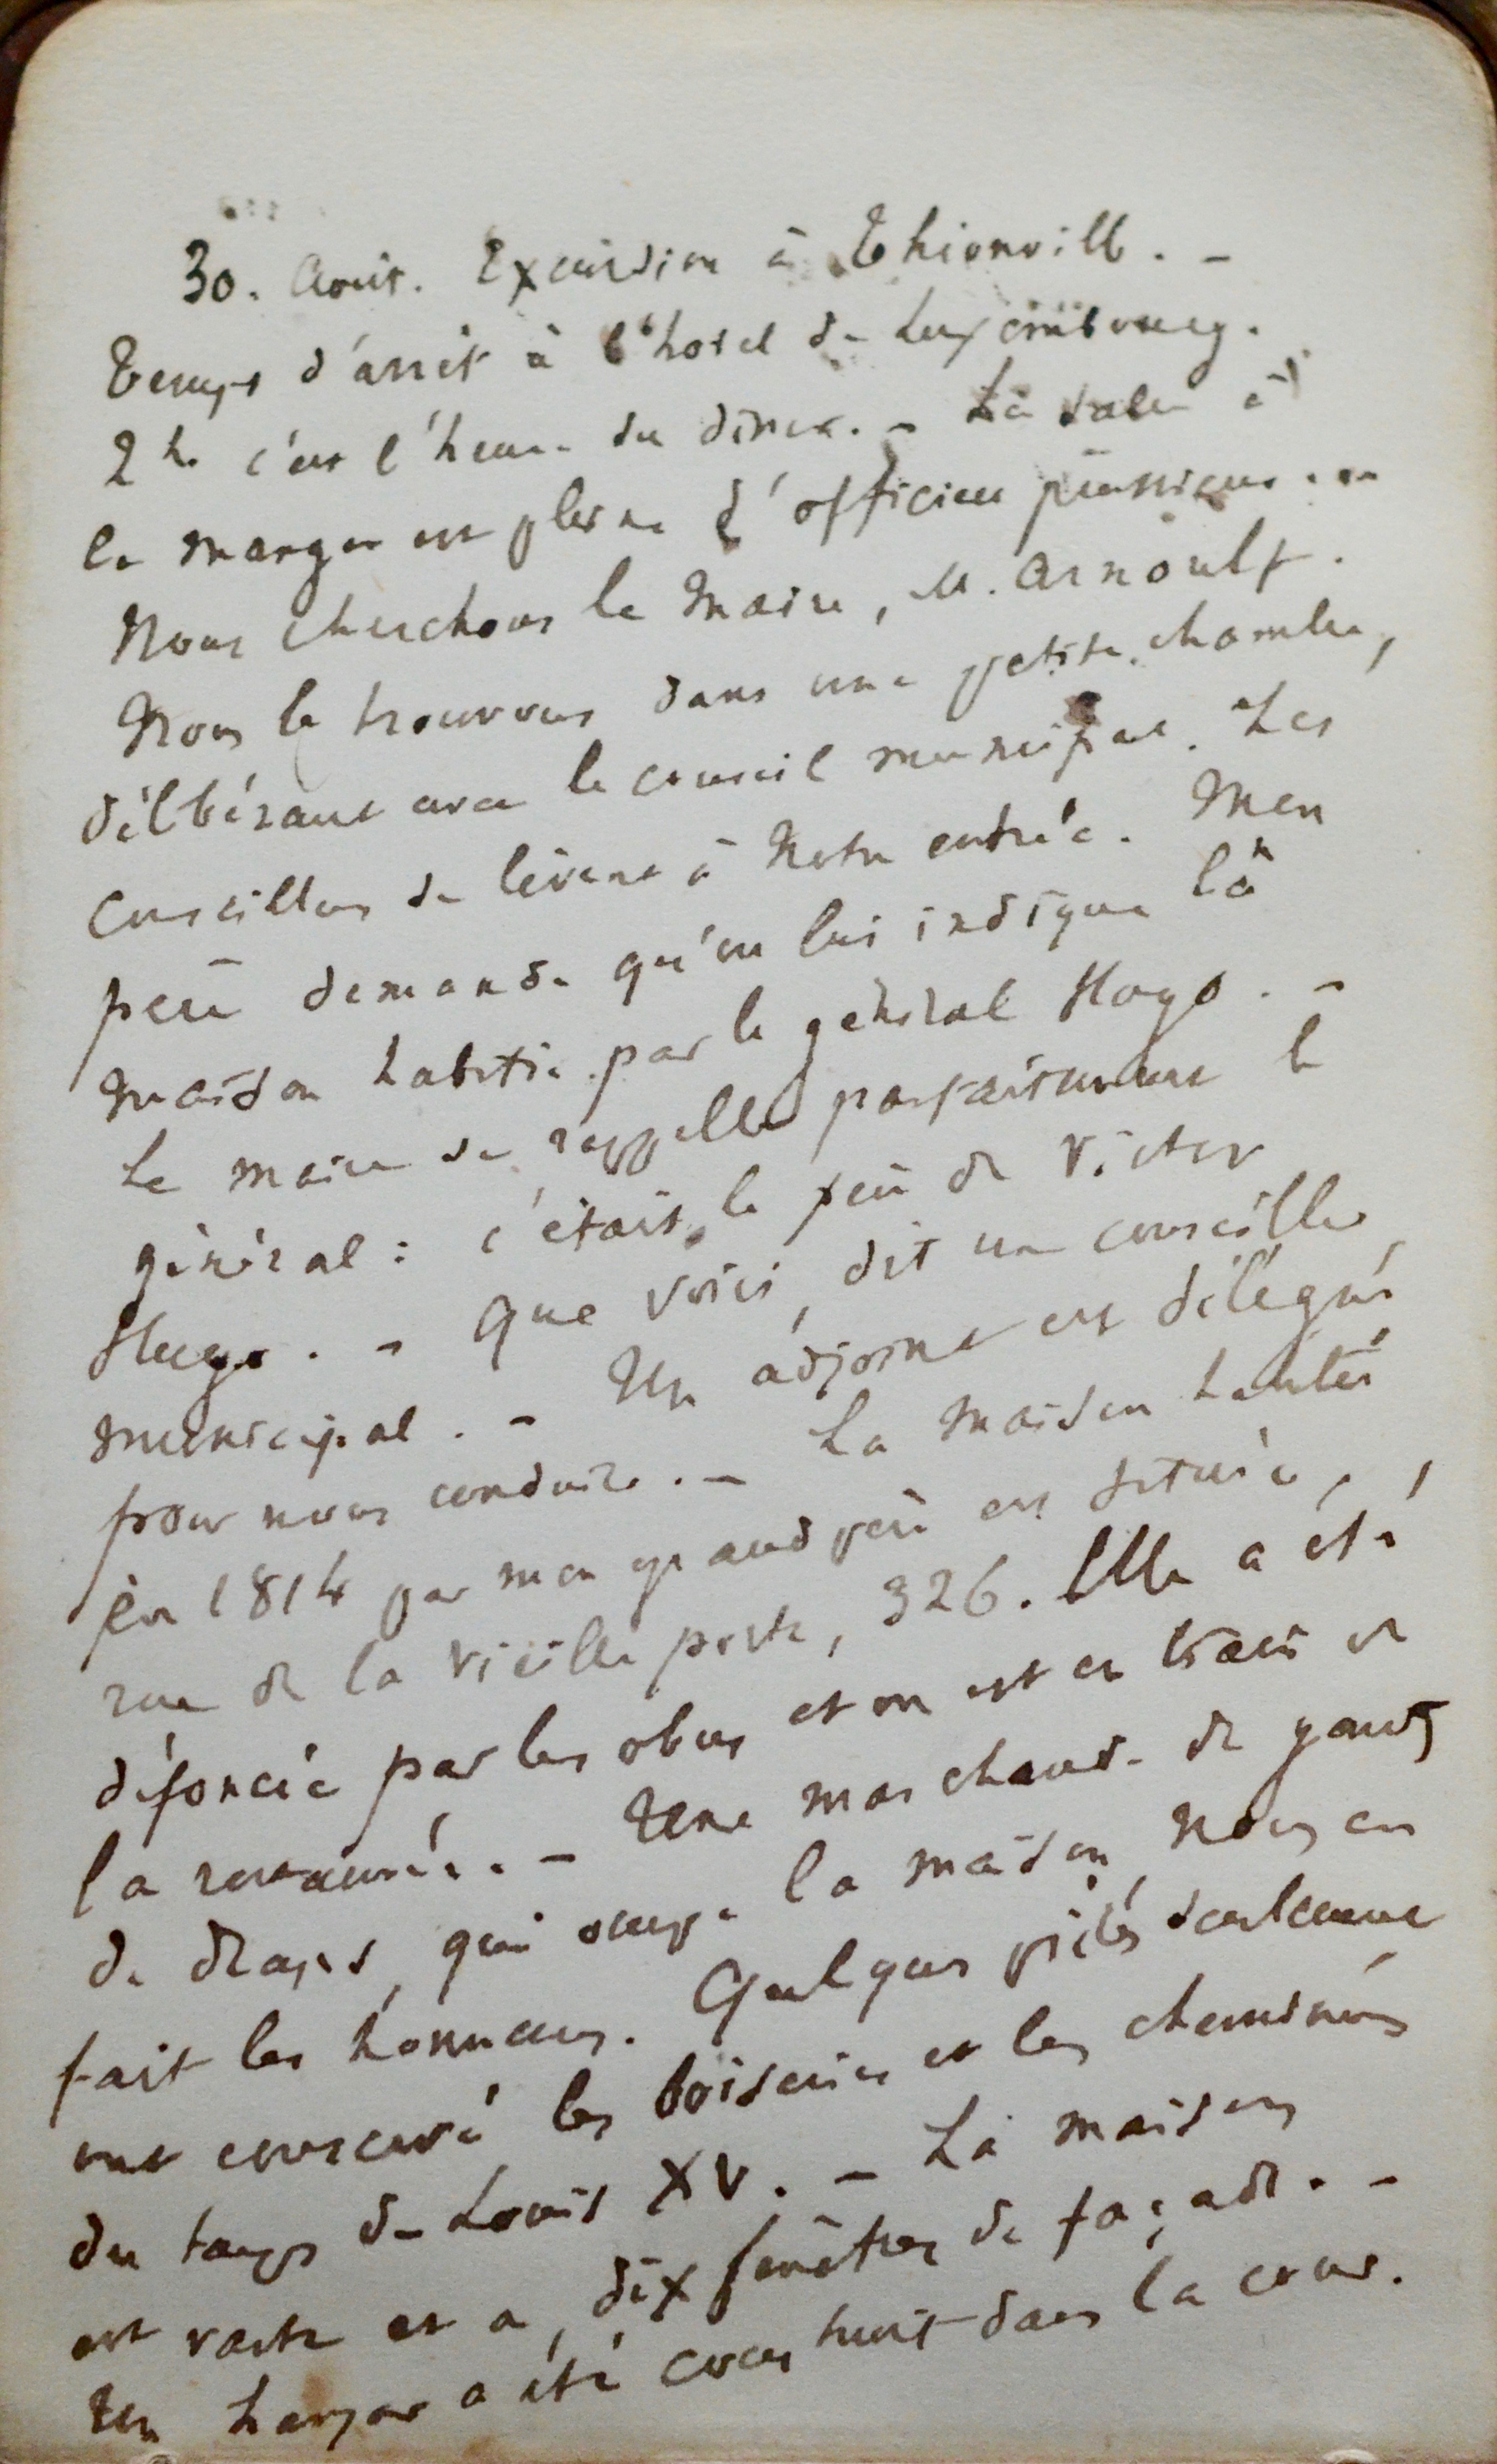 30. Aout. Excursion à Thionville. –
Temps d'arrêt à l'hotel de Luxembourg.
2h. c'est l'heure du diner. – La salle à
le manger est pleine d'officiers prussiens. –
Nous cherchons le Maire, M. Arnoult.
Nous le trouvons dans une petite chambre,
délibérant avec le conseil municipal. Les
conseillers se lèvent à notre entrée. Mon
père demande qu'on lui indique la
maison habitée par le général Hugo. –
Le maire se rappelle parfaitement le
général : c'était le père de Victor
Hugo. – Que voici, dit un conseiller
municipal. – Un adjoint est délégué
pour nous conduire. – La maison habitée
en 1814 par mon grand père est située,
rue de la vieille porte, 326. Elle a été
défoncée par les obus et on est en train de
la restaurée. – Une marchande de gants
de draps, qui occupe la maison, nous en
fait les honneurs. Quelques pièces seulement
ont conservé les boiseries et les cheminées
du temps de Louis XV. – La maison
est vaste et a dix fenêtres de façade. –
Un hangar a été construit dans la cour.